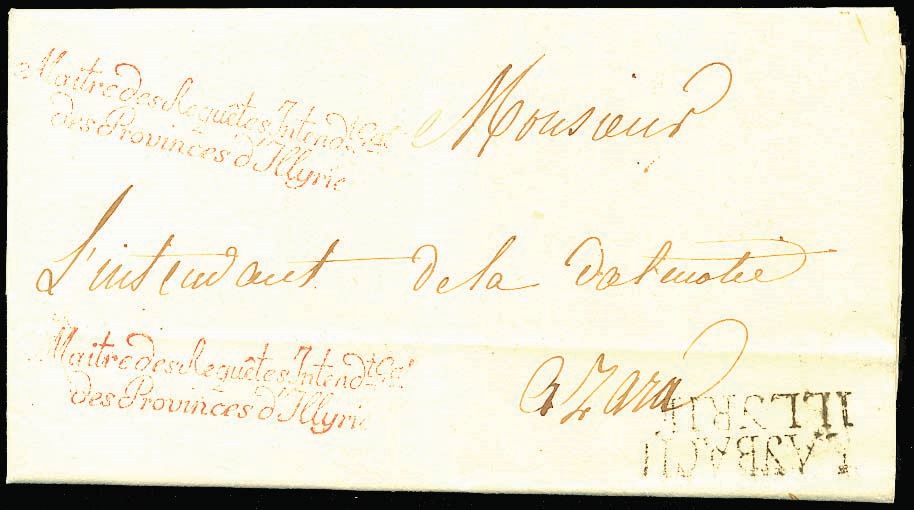 Maitre des Requêtes, Intend.t G.al
des Provinces d'Illyrie
Monsieur
L'intendant de la dalmatie
Maitre des Requêtes, Intend.t G.al
des Provinces d'Illyrie
a Zara
LAYBACH
ILLYRIE